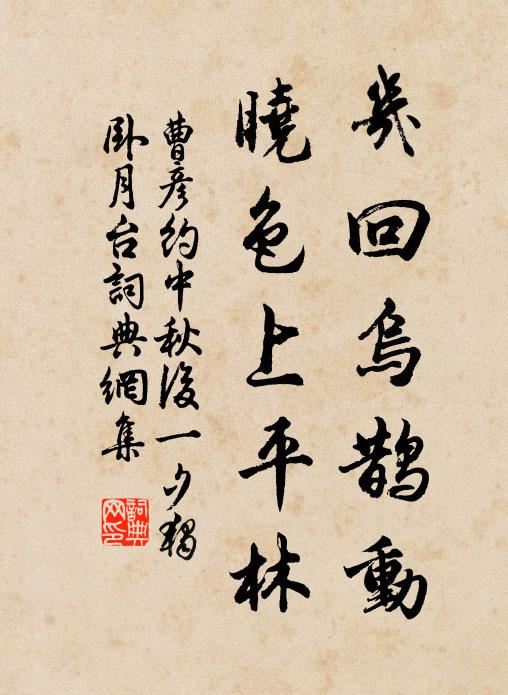 幾回烏鵲動
曉色上平林
曹彥約中秋後一夕獨
卧月台詞典網集
詞典
网印